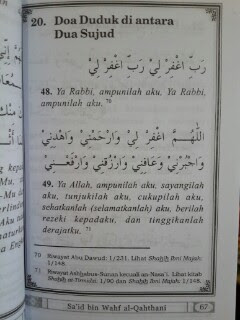 20. Doa Duduk di antara
Dua Sujud
رَبِّ اغْفِرْ لِيْ رَبِّ اغْفِرْ لِيْ
48. Ya Rabbi, ampunilah aku, Ya Rabbi,
ampunilah aku. 70
اَللَّهُمَّ اغْفِرْ لِيْ وَارْحَمْنِيْ وَاهْدِنِيْ
وَاجْبُرْنِيْ وَعَافِنِيْ وَارْزُقْنِيْ وَارْفَعْنِيْ
49. Ya Allah, ampunilah aku, sayangilah
aku, tunjukilah aku, cukupilah aku,
sehatkanlah (selamatkanlah) aku, berilah
rezeki kepadaku, dan tinggikanlah
derajatku. 71
70 Riwayat Abu Dawud: 1/231. Lihat Shahih Ibni Majah:
1/148.
71 Riwayat Ashhabus-Sunan kecuali an-Nasa'i. Lihat kitab
Shahih at-Tirmidzi: 1/90 dan Shahih Ibni Majah: 1/148.
Sa'id bin Wahf al-Qahthani
67